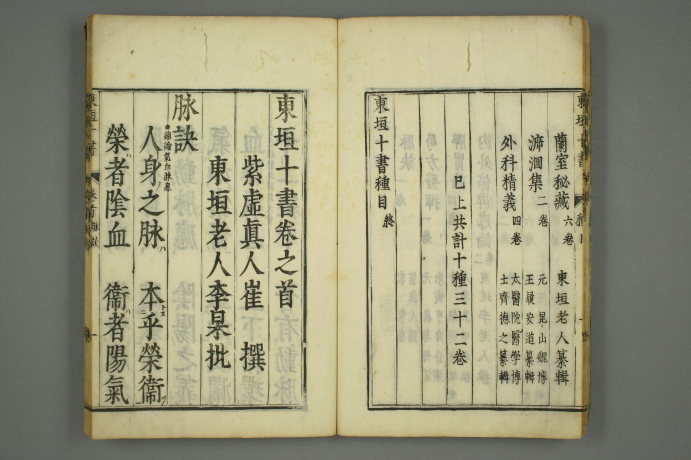 蘭室秘藏 六卷 東垣老人纂輯
泝洄集 二卷 元崑山
王履安道纂輯
外科精義 四卷 太醫院醫學博
士齊德之纂輯
已上共計十種三十二卷
東垣十書種目 終
東垣十書卷之首
紫虛眞人崔 撰
東垣老人李杲批
脉訣
人身之脉 本乎榮衞
榮者陰血 衞者陽氣
東垣十書